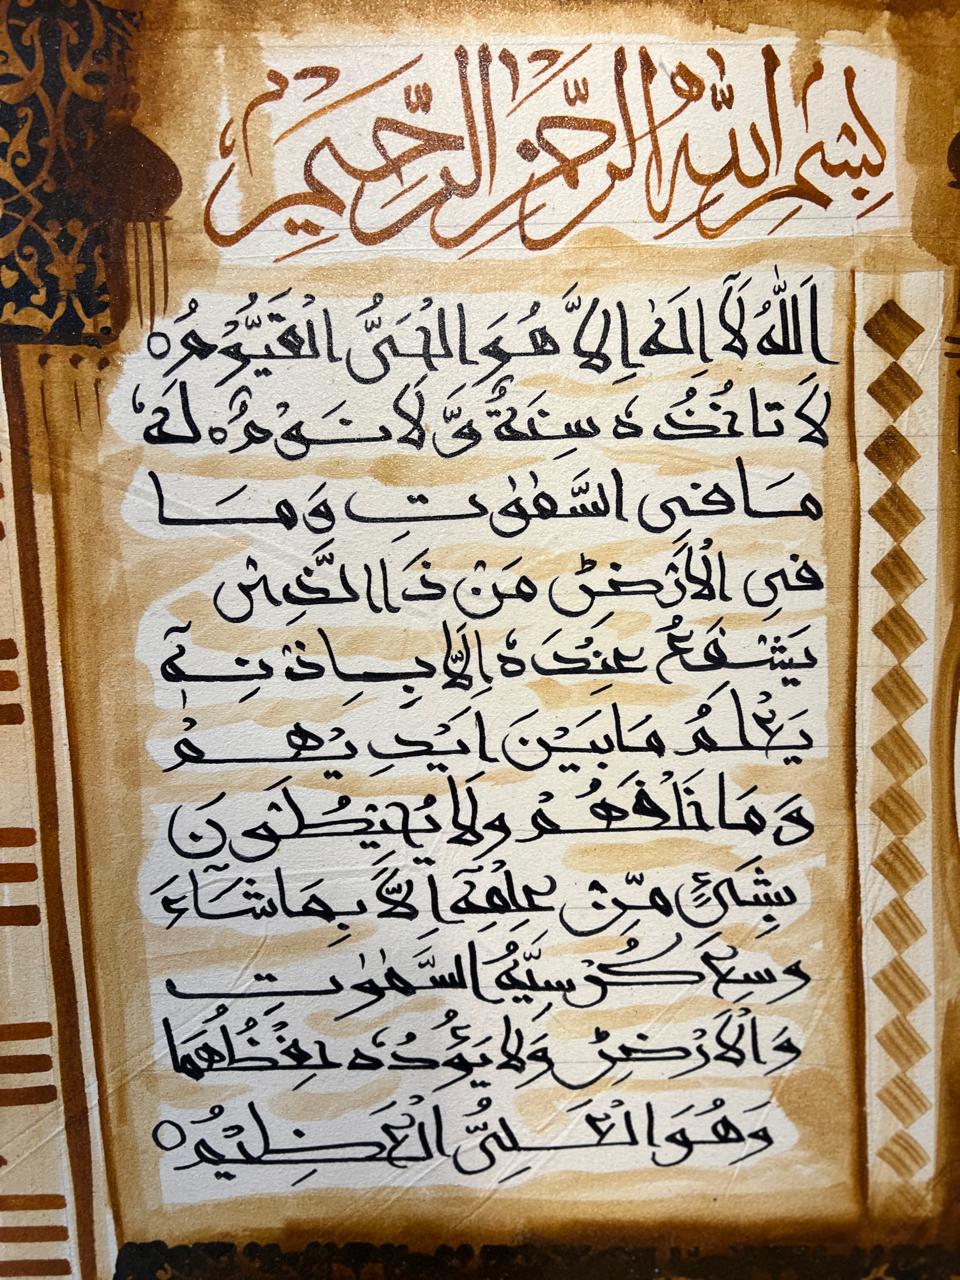 بِسْمِ اللّٰهِ الرَّحْمٰنِ الرَّحِيْمِ
اَللّٰهُ لَآ اِلٰهَ اِلَّا هُوَ الْحَیُّ الْقَيُّوْمُ ○
لَا تَاخُذُهٗ سِنَةٌ وَّلَا نَوْمٌ ○ لَهٗ
مَا فِی السَّمٰوٰتِ وَمَا
فِی الْاَرْضِ مَنْ ذَا الَّذِیْ
يَشْفَعُ عِنْدَهٗ اِلَّا بِاِذْنِهٖ
يَعْلَمُ مَا بَيْنَ اَيْدِيْهِمْ
وَمَا خَلْفَهُمْ وَلَا يُحِيْطُوْنَ
بِشَیْءٍ مِّنْ عِلْمِهٖٓ اِلَّا بِمَا شَآءَ
وَسِعَ كُرْسِيُّهُ السَّمٰوٰتِ
وَالْاَرْضَ وَلَا يَؤُدُهٗ حِفْظُهُمَا
وَهُوَ الْعَلِیُّ الْعَظِيْمُ ○